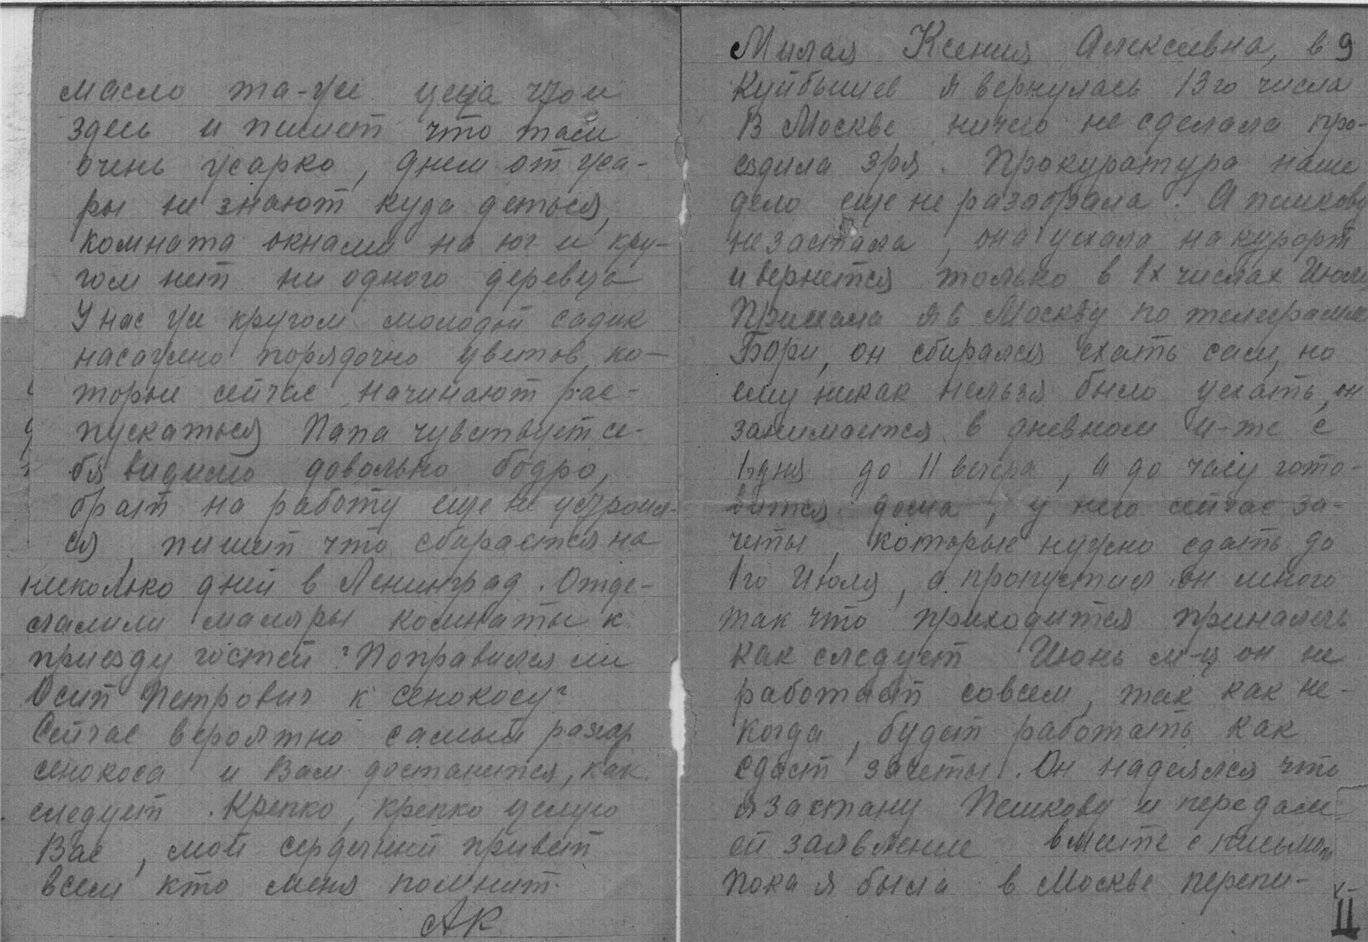 масло та-же цена что и
здесь и пишет что там
очень жарко, днем от жа-
ры не знают куда деться,
комната окнами на юг и кру-
гом нет ни одного деревца
У нас же кругом молодой садик
насажено порядочно цветов ко-
торые сейчас начинают рас-
пускаться Папа чувствует се-
бя видимо довольно бодро,
брат на работу еще не устроил-
ся, пишет что собирается на
несколько дней в Ленинград. Отде-
лали маляры комнаты к
приезду гостей? Поправился ли
Осип Петрович к сенокосу?
Сейчас вероятно самый разгар
сенокоса и Вам достанется, как
следует. Крепко, крепко целую
Вас, мой сердечный привет
всем кто меня помнит.
АК
Милая Ксения Алексеевна, в 9
Куйбышев я вернулась 13го числа
В Москве ничего не сделала про-
ездила зря. Прокуратура наше
дело еще не разобрала. А Пешкову
не застала, она уехала на курорт
и вернется только в 1х числах Июля
Приехала я в Москву по телеграмме
Бори, он сбирался ехать сам, но
ему никак нельзя было уехать, он
занимается в дневном и-те с
1 дня до 11 вечера, а до часу гото-
вится дома, у него сейчас за-
четы, которые нужно сдать до
1го Июля, а пропустил он много
так что приходится приналечь
как следует Июнь м-ц он не
работает совсем, так как не-
когда, будет работать как
сдаст зачеты. Он надеялся что
я застану Пешкову и передам
ей заявление вместе с письмом
пока я была в Москве перепи-
II